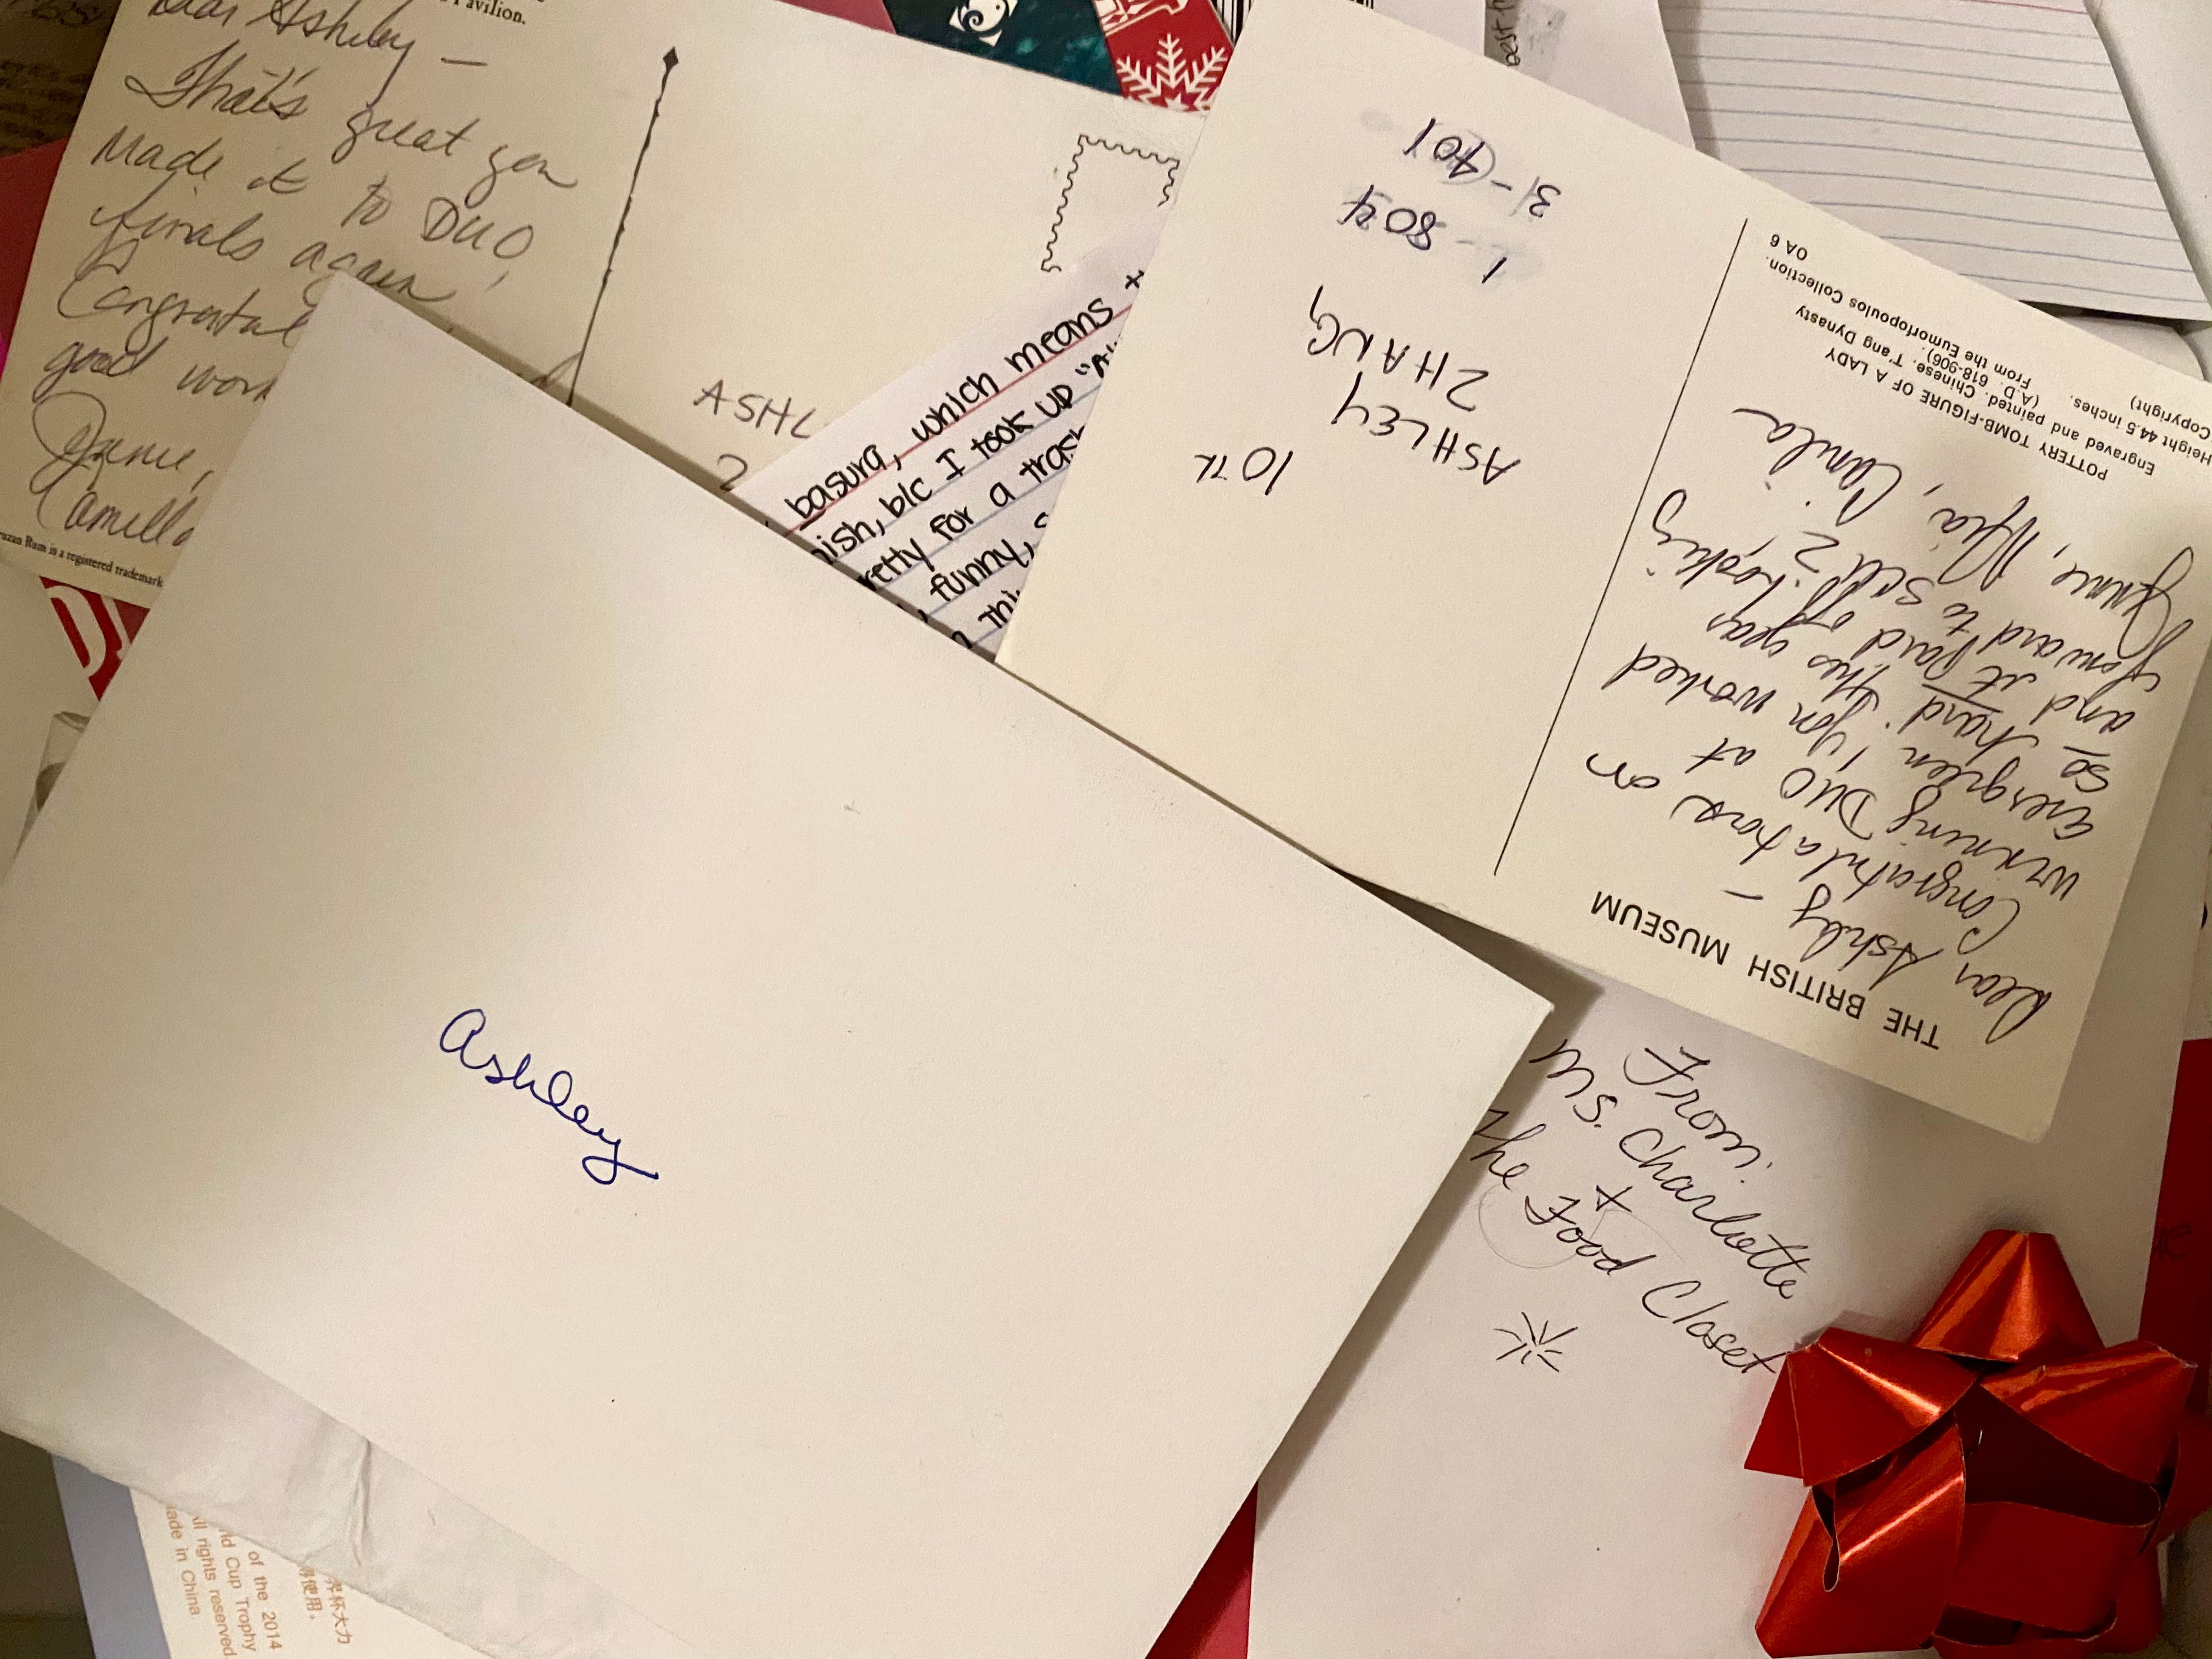 Pavilion.
Dear Ashley —
That's great you
Made it to DUO
finals again!
good work
Jamie,
Camilla
Rum is a registered trademark
ASHL
basura, which means
b/c I took up
for a trash
funny,
ASHLEY
ZHANG
10th
1 - 804
3 - 401
THE BRITISH MUSEUM
Dear Ashley —
Congratulations on
winning DUO at
Evergreen! You worked
so hard this year
and it paid off! Looking
forward to Sem 2!
Camila
POTTERY TOMB-FIGURE OF A LADY
Engraved and painted. Chinese. T'ang Dynasty
(A.D. 618-906).
Height 44.5 inches. From the Eumorfopoulos Collection.
Copyright) OA 6
Ashley
From:
Ms. Charlotte
+
The Food Closet
best
of the 2014
Cup Trophy
All rights reserved
Made in China.
界杯大力
使用。